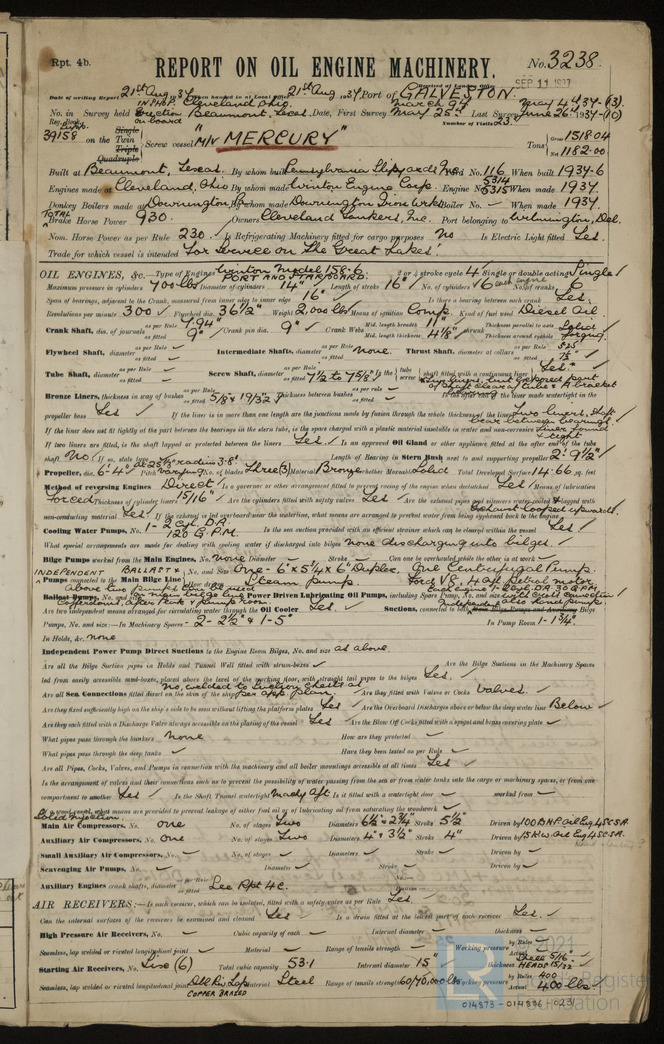 Rpt. 4b.
REPORT ON OIL ENGINE MACHINERY.
No. 3238.
SEP 11 1937
Date of writing Report 21st Aug 1937 When handed in at Local Office 21st Aug 1937 Port of GALVESTON.
No. in Survey held IN SHOP. Cleveland, Ohio. Date, First Survey March 9th Last Survey May 4th 1937
Reg. Book. Erection & on board Beaumont, Texas. May 25th June 26th 1937 (10)
Number of Visits 23.
39158 on the Single Twin Triple Quadruple Screw vessel M/V "MERCURY" Tons Gross 1518.04 Net 1182.00
Built at Beaumont, Texas. By whom built Pennsylvania Shipyards Inc. Yard No. 116 When built 1937-6
Engines made at Cleveland, Ohio By whom made Winton Engine Corp. Engine No. 5314 5315 When made 1937.
Donkey Boilers made at Downington, Pa. By whom made Downington Iron Wks Boiler No. – When made 1937.
TOTAL Brake Horse Power 930. Owners Cleveland Tankers, Inc. Port belonging to Wilmington, Del.
Nom. Horse Power as per Rule 230 Is Refrigerating Machinery fitted for cargo purposes No Is Electric Light fitted Yes.
Trade for which vessel is intended "For service on the Great Lakes".
OIL ENGINES, &c.—Type of Engines Winton Model 158-6 PORT AND STARBOARD. 2 or 4 stroke cycle 4 Single or double acting Single
Maximum pressure in cylinders 700 lbs Diameter of cylinders 14" Length of stroke 16" No. of cylinders 6 each engine No. of cranks 6
Span of bearings, adjacent to the Crank, measured from inner edge to inner edge 16" Is there a bearing between each crank Yes.
Revolutions per minute 300 Flywheel dia. 36 1/2" Weight 2,000 lbs Means of ignition Comp. Kind of fuel used Diesel Oil.
Crank Shaft, dia. of journals as per Rule 7.94" as fitted 9" Crank pin dia. 9" Crank Webs Mid. length breadth 11" Mid. length thickness 4 1/8" Thickness parallel to axis Solid Thickness around eyehole forging.
Flywheel Shaft, diameter as per Rule as fitted Intermediate Shafts, diameter as per Rule as fitted none. Thrust Shaft, diameter at collars as per Rule 5.25 as fitted
Tube Shaft, diameter as per Rule as fitted Screw Shaft, diameter as per Rule as fitted 7 1/2 to 7 5/8" Is the tube screw shaft fitted with a continuous liner
Bronze Liners, thickness in way of bushes as per Rule as fitted 5/8 & 19/32" Thickness between bushes as per Rule as fitted Is the after end of the liner made watertight in the
propeller boss Yes If the liner is in more than one length are the junctions made by fusion through the whole thickness of the liner Two liners. Shaft bear between bearings.
If the liner does not fit tightly at the part between the bearings in the stern tube, is the space charged with a plastic material insoluble in water and non-corrosive
If two liners are fitted, is the shaft lapped or protected between the liners Yes. Is an approved Oil Gland or other appliance fitted at the after end of the tube
shaft No If so, state type Length of Bearing in Stern Bush next to and supporting propeller 2'-9 1/2"
Propeller, dia. 6'-4" Pitch varying No. of blades Three (3) Material Bronze whether Moveable Solid Total Developed Surface 14.66 sq. feet
Method of reversing Engines Direct Is a governor or other arrangement fitted to prevent racing of the engine when declutched Yes Means of lubrication
Forced Thickness of cylinder liners 15/16" Are the cylinders fitted with safety valves Yes Are the exhaust pipes and silencers water cooled & lagged with
non-conducting material Yes If the exhaust is led overboard near the waterline, what means are arranged to prevent water from being syphoned back to the engine Exhaust looped upward.
Cooling Water Pumps, No. 1-2 Cyl. D.A. 120 G.P.M. Is the sea suction provided with an efficient strainer which can be cleared within the vessel Yes!
What special arrangements are made for dealing with cooling water if discharged into bilges none discharging into bilges.
Bilge Pumps worked from the Main Engines, No. None Diameter – Stroke – Can one be overhauled while the other is at work –
INDEPENDENT Pumps connected to the Main Bilge Line BALLAST & No. and Size One - 6"x5 1/4"x6" Duplex. One Centrifugal Pump. How driven Steam pump. Ford V8, 4 cyl petrol motor
Ballast Pumps, No. and size Above two pumps can be used Power Driven Lubricating Oil Pumps, including Spare Pump, No. and size
Are two independent means arranged for circulating water through the Oil Cooler Yes. Suctions, connected to
Pumps, No. and size:—In Machinery Spaces 2-2 1/2" & 1-5" In Pump Room 1-1 3/4"
In Holds, &c. none
Independent Power Pump Direct Suctions to the Engine Room Bilges, No. and size as above
Are all the Bilge Suction pipes in Holds and Tunnel Well fitted with strum-boxes ✓ Are the Bilge Suctions in the Machinery Spaces
led from easily accessible mud-boxes, placed above the level of the working floor, with straight tail pipes to the bilges Yes.
Are all Sea Connections fitted direct on the skin of the ship No, welded to suction chests as per app plan. Are they fitted with Valves or Cocks Valves.
Are they fixed sufficiently high on the ship's side to be seen without lifting the platform plates Yes Are the Overboard Discharges above or below the deep water line Below
Are they each fitted with a Discharge Valve always accessible on the plating of the vessel Yes Are the Blow Off Cocks fitted with a spigot and brass covering plate ✓
What pipes pass through the bunkers none How are they protected –
What pipes pass through the deep tanks ✓ Have they been tested as per Rule –
Are all Pipes, Cocks, Valves, and Pumps in connection with the machinery and all boiler mountings accessible at all times Yes
Is the arrangement of valves and their connections such as to prevent the possibility of water passing from the sea or from water tanks into the cargo or machinery spaces, or from one
compartment to another Yes Is the Shaft Tunnel watertight Mach'y Aft Is it fitted with a watertight door – worked from –
If a wood vessel, what means are provided to prevent leakage of either fuel oil or of lubricating oil from saturating the woodwork ✓
Solid Injection.
Main Air Compressors, No. one No. of stages Two Diameters 6 1/2" & 2 3/4" Stroke 5 1/2" Driven by 100 B.H.P. Oil Eng 4SCSA.
Auxiliary Air Compressors, No. One No. of stages Two Diameters 4" & 3 1/2" Stroke 4" Driven by 15 K.W. Oil Eng 4SCSA.
Small Auxiliary Air Compressors, No. – No. of stages – Diameters – Stroke – Driven by –
Scavenging Air Pumps, No. – Diameter – Stroke – Driven by –
Auxiliary Engines crank shafts, diameter as per Rule as fitted See Rpt 4c.
AIR RECEIVERS:—Is each receiver, which can be isolated, fitted with a safety valve as per Rule Yes.
Can the internal surfaces of the receivers be examined and cleaned Yes Is a drain fitted at the lowest part of each receiver Yes.
High Pressure Air Receivers, No. – Cubic capacity of each – Internal diameter – thickness –
Seamless, lap welded or riveted longitudinal joint – Material – Range of tensile strength – Working pressure by Rules – Actual –
Starting Air Receivers, No. Six (6) Total cubic capacity 53.1 Internal diameter 15" thickness Shell 5/16" HEADS 15/32
Seamless, lap welded or riveted longitudinal joint Dbl Riv Lap COPPER BRAZED Material Steel Range of tensile strength 60/70,000 lbs Working pressure by Rules 400 Actual 400 lbs
© 2021
LR Lloyd's Register Foundation
014873 - 014886 - 0231